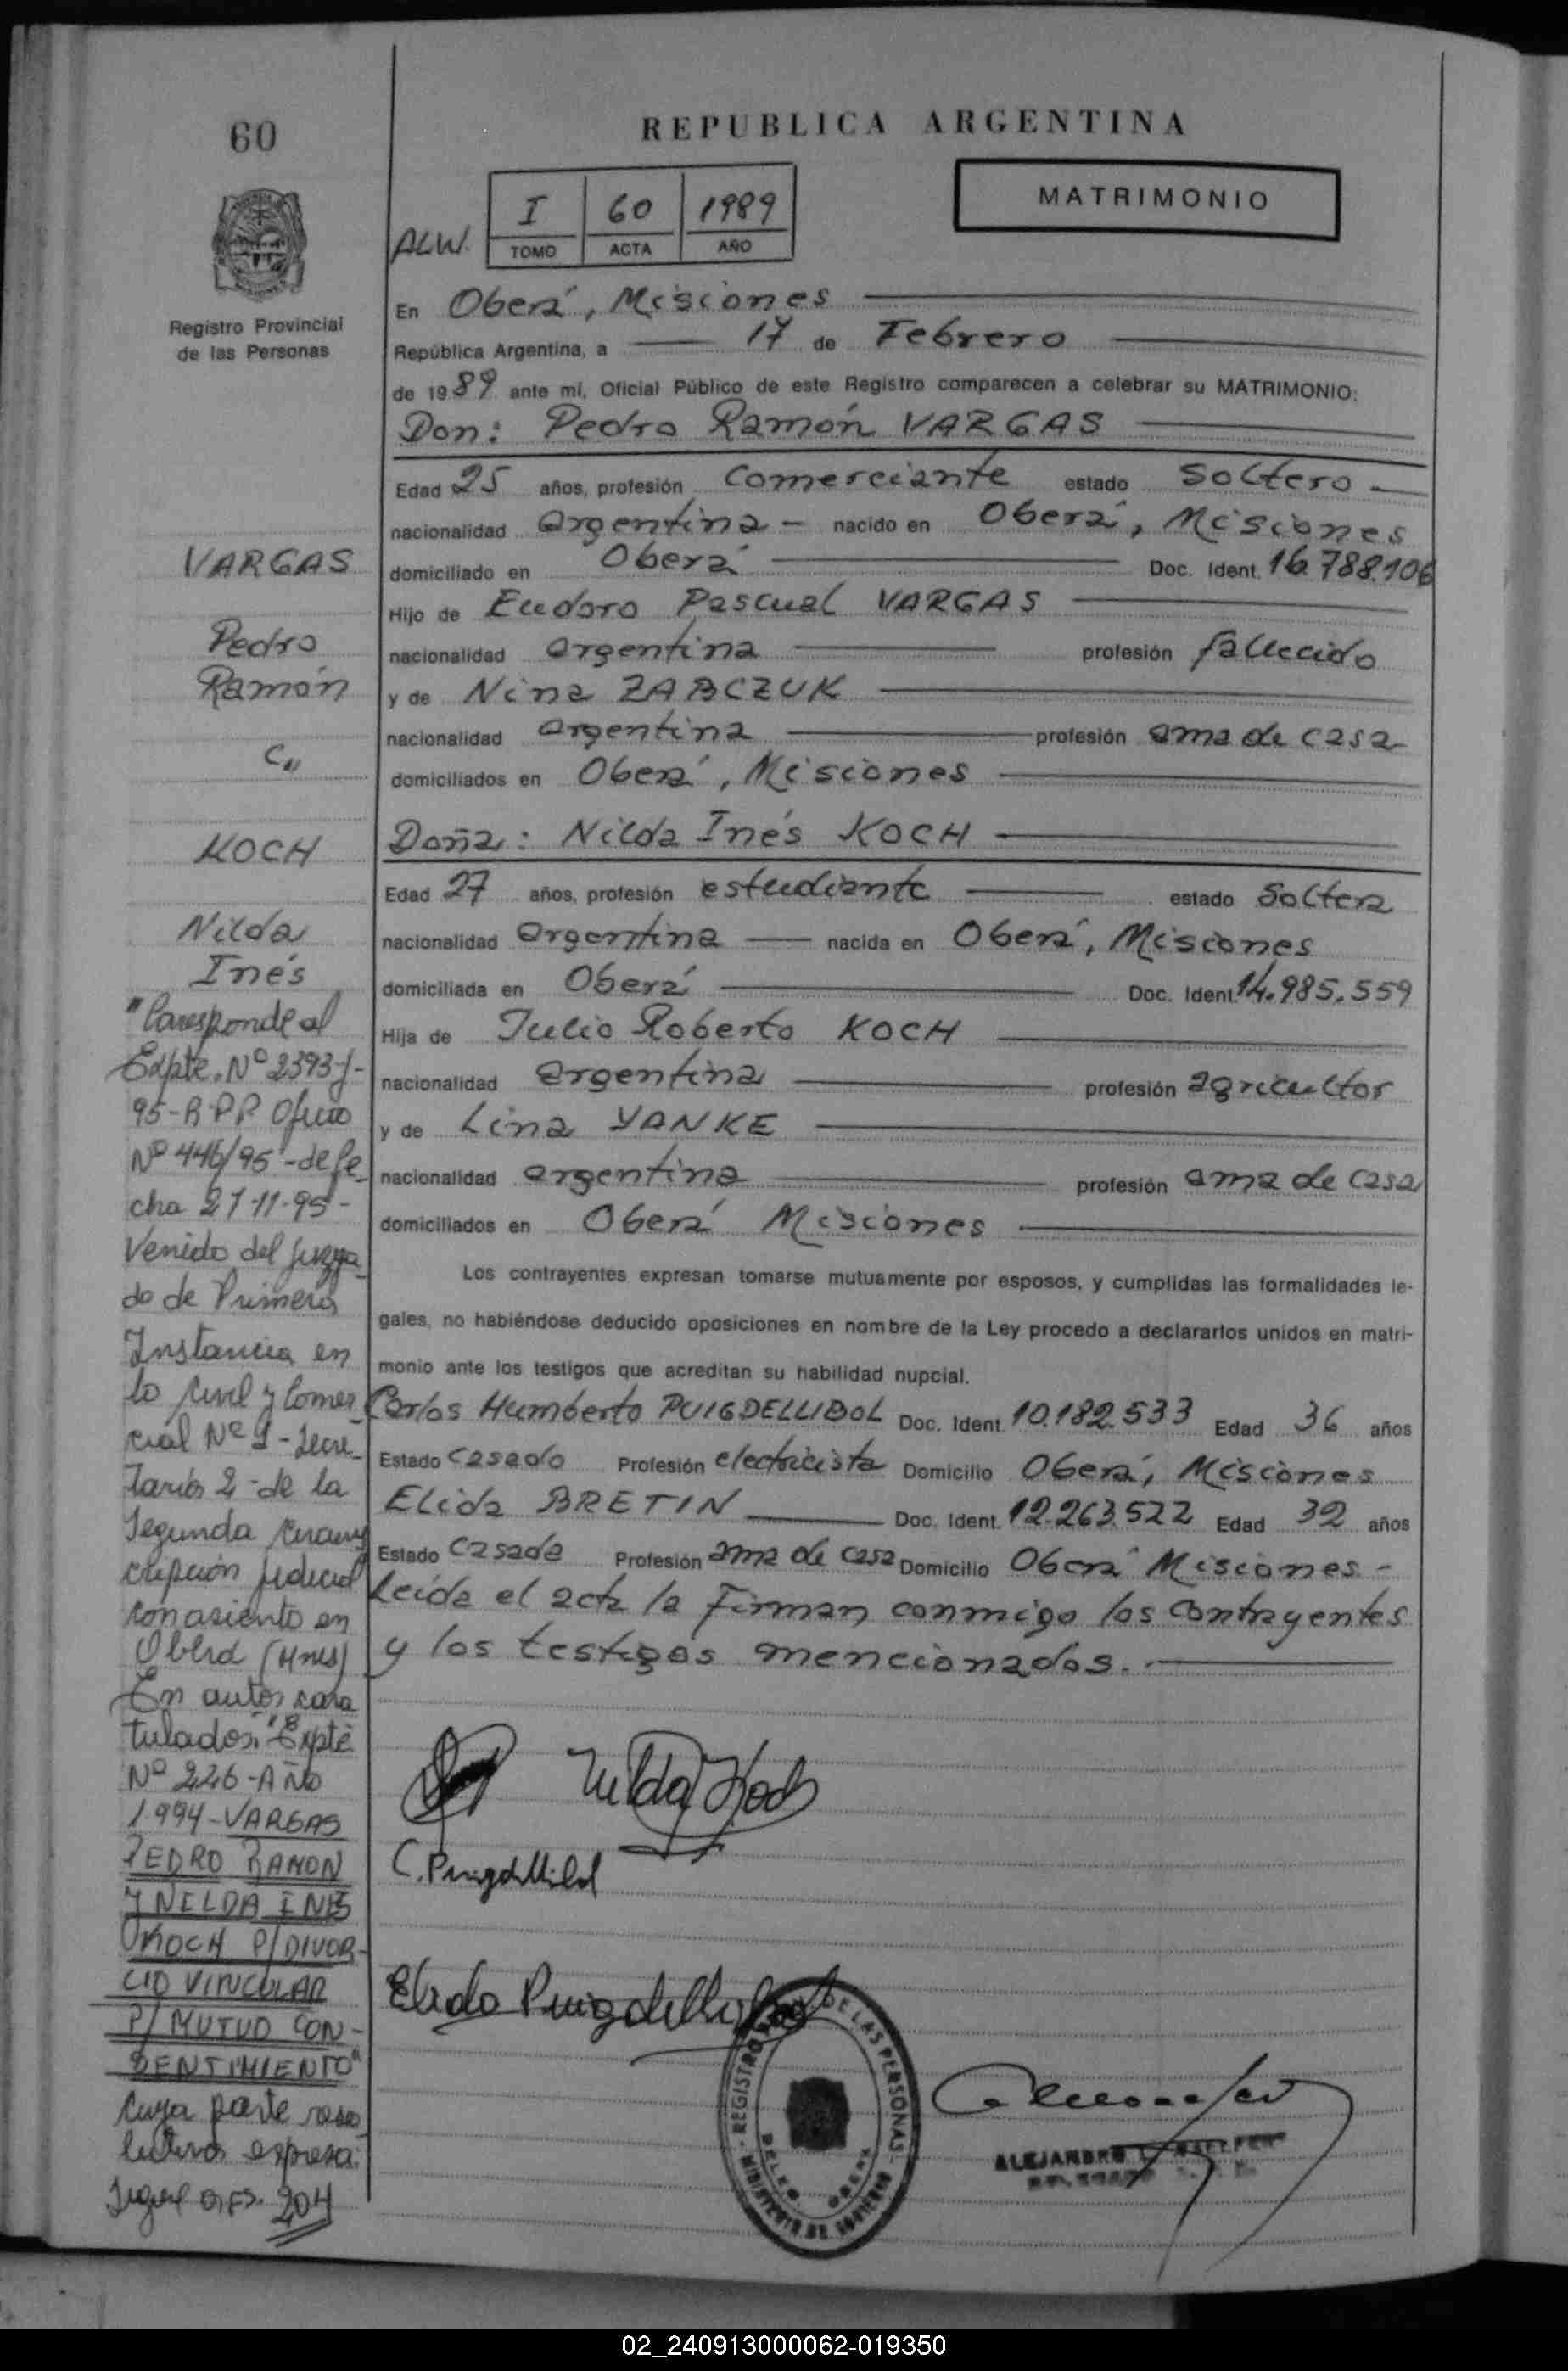 60
REPUBLICA ARGENTINA
MATRIMONIO
I 60 1989
ALW. TOMO ACTA AÑO
Registro Provincial
de las Personas
En Oberá, Misiones
República Argentina, a 17 de Febrero
de 1989 ante mi, Oficial Público de este Registro comparecen a celebrar su MATRIMONIO:
Don: Pedro Ramón VARGAS
Edad 25 años, profesión Comerciante estado Soltero
nacionalidad argentina - nacido en Oberá, Misiones
domiciliado en Oberá Doc. Ident. 16.788.106
Hijo de Eudoro Pascual VARGAS
nacionalidad argentina profesión fallecido
y de Nina ZABCZUK
nacionalidad argentina profesión ama de casa
domiciliados en Oberá, Misiones
Doña: Nilda Inés KOCH
Edad 27 años, profesión estudiante estado Soltera
nacionalidad argentina nacida en Oberá, Misiones
domiciliada en Oberá Doc. Ident. 14.985.559
Hija de Julio Roberto KOCH
nacionalidad argentina profesión agricultor
y de Lina YANKE
nacionalidad argentina profesión ama de casa
domiciliados en Oberá Misiones
Los contrayentes expresan tomarse mutuamente por esposos, y cumplidas las formalidades le-
gales, no habiéndose deducido oposiciones en nombre de la Ley procedo a declararlos unidos en matri-
monio ante los testigos que acreditan su habilidad nupcial.
Carlos Humberto PUIGDELLIBOL Doc. Ident. 10.182.533 Edad 36 años
Estado Casado Profesión electricista Domicilio Oberá, Misiones
Elida BRETIN Doc. Ident. 12.263.522 Edad 32 años
Estado Casada Profesión ama de casa Domicilio Oberá Misiones -
Leída el acta la Firman conmigo los contrayentes
y los testigos mencionados.
Nilda Koch
C. Puigdellibol
Elida Puigdellibol
REGISTRO DE LAS PERSONAS
MINISTERIO DE GOBIERNO
ALEJANDRO
VARGAS
Pedro
Ramón
C"
KOCH
Nilda
Inés
"Corresponde al
Expte. Nº 2393-J-
95-R.P.P. Oficio
Nº 446/95-de fe-
cha 27-11-95-
Venido del Juzga-
do de Primera
Instancia en
lo Civil y Comer-
cial Nº 1-Secre-
taría 2-de la
Segunda Circuns
cripción Judicial
con asiento en
Oberá (Mnes)
En autos cara
tulados: "Expte
Nº 226-Año
1.994-VARGAS
PEDRO RAMON
Y NILDA INES
KOCH P/DIVOR-
CIO VINCULAR
P/ MUTUO CON-
SENTIMIENTO"
Cuya parte reso
lutiva expresa:
Sigue a Fs. 204
02_240913000062-019350